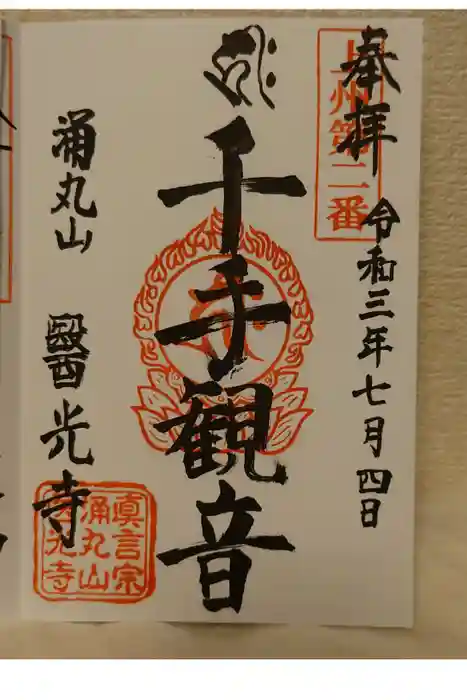 上州第二番
奉拝
令和三年七月四日
千手観音
涌丸山
醫光寺
真言宗
涌丸山
醫光寺